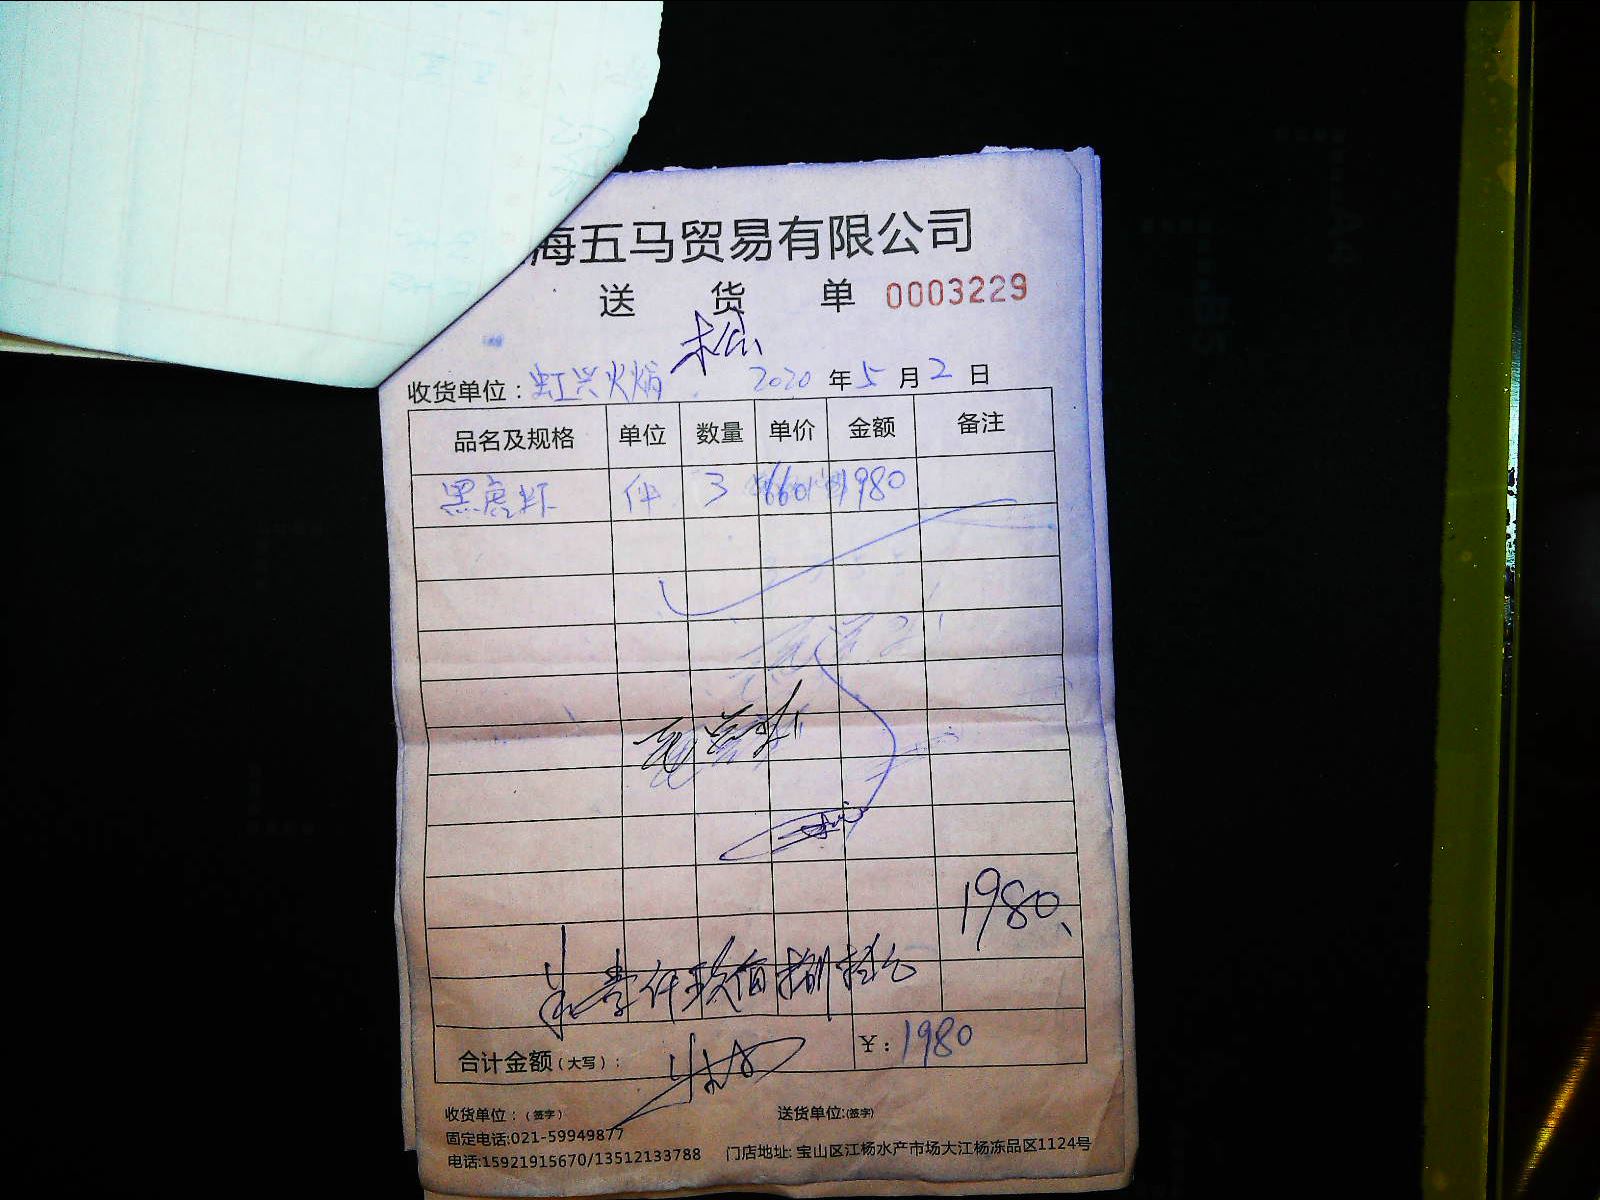 海五马贸易有限公司
送 货 单 0003229
收货单位：虹兴火焰 2020 年 5 月 2 日
品名及规格 单位 数量 单价 金额 备注
黑虎虾 件 3 660 1980
1980
壹仟玖佰捌拾
合计金额（大写）： ¥：1980
收货单位：（签字） 送货单位:(签字)
固定电话:021-59949877
电话:15921915670/13512133788 门店地址: 宝山区江杨水产市场大江杨冻品区1124号